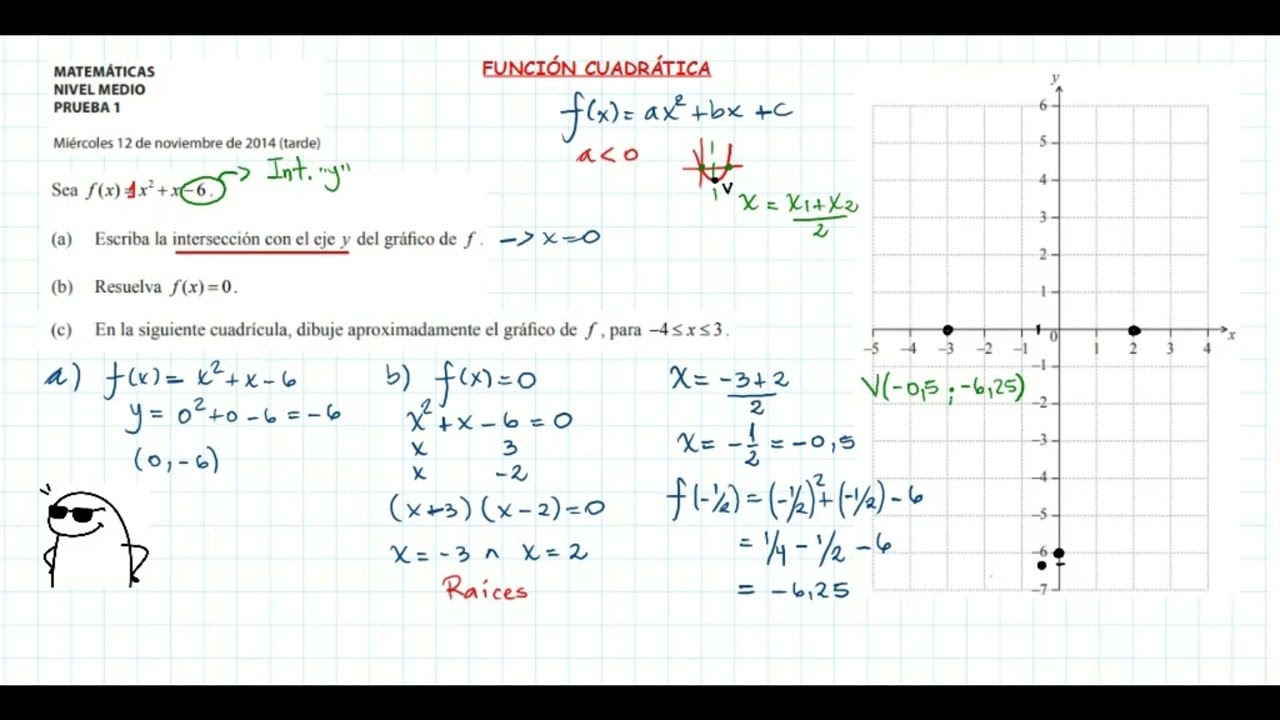 FUNCIÓN CUADRÁTICA
MATEMÁTICAS
NIVEL MEDIO
PRUEBA 1
Miércoles 12 de noviembre de 2014 (tarde)
f(x) = ax² + bx + c
a < 0
V
x = (x₁ + x₂)/2
Int. "y"
Sea f(x) = 1x² + x - 6.
(a) Escriba la intersección con el eje y del gráfico de f. -> x = 0
(b) Resuelva f(x) = 0.
(c) En la siguiente cuadrícula, dibuje aproximadamente el gráfico de f, para -4 ≤ x ≤ 3.
a) f(x) = x² + x - 6
y = 0² + 0 - 6 = -6
(0, -6)
b) f(x) = 0
x² + x - 6 = 0
x 3
x -2
(x+3)(x-2) = 0
x = -3 ∧ x = 2
Raíces
x = (-3+2)/2
x = -1/2 = -0,5
f(-1/2) = (-1/2)² + (-1/2) - 6
= 1/4 - 1/2 - 6
= -6,25
y
6
5
4
3
2
1
-5 -4 -3 -2 -1 0 1 2 3 4 x
-1
V(-0,5 ; -6,25)
-2
-3
-4
-5
-6
-7